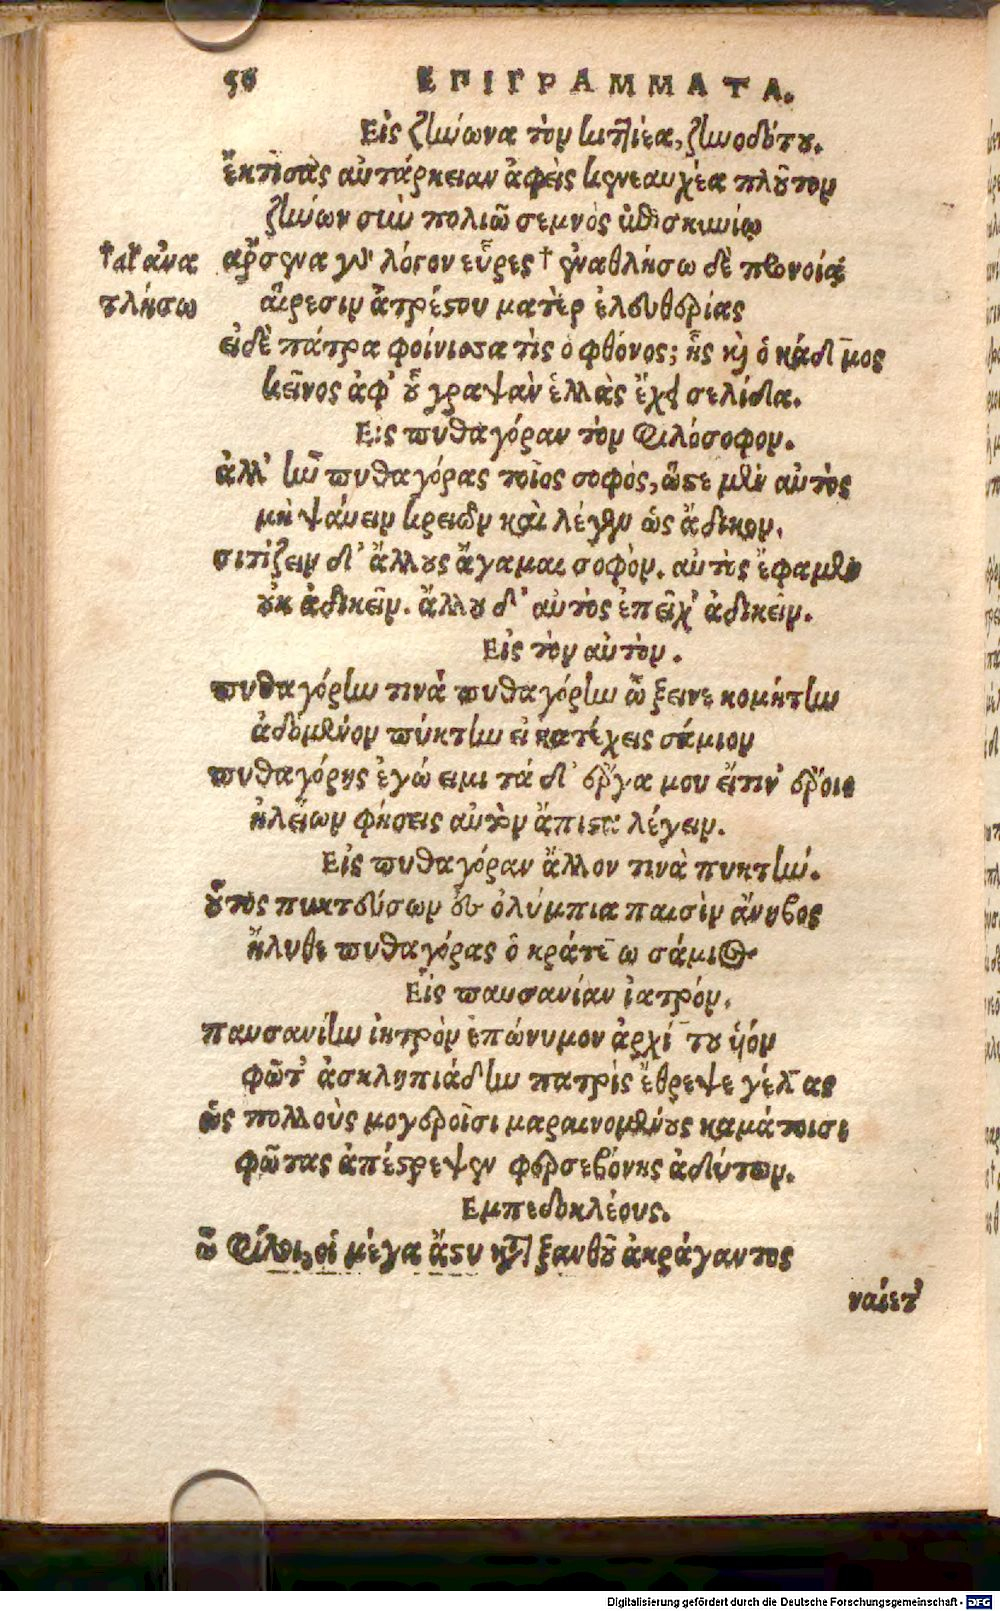 56 ΕΠΙΓΡΑΜΜΑΤΑ.
Εἰς ζήνωνα τὸν κιτιέα, ζηνοδότου.
ἔκτισας αὐτάρκειαν ἀφεὶς κενεαυχέα πλοῦτον
ζήνων σὺν πολιῷ σεμνὸς ἐπισκυνίῳ
ἄρσενα γὸ λόγον εὗρες † ἐναθλήσω δὲ προνοίᾳ
†αἲ ἀνα
τλήσω
αἵρεσιν ἀτρέστου ματὲρ ἐλευθερίας
εἰ δὲ πάτρα φοίνισσα τὶς ὁ φθόνος; ἧς καὶ ὁ κάδμος
κεῖνος ἀφ' οὗ γραπτὰν ἑλλὰς ἔχει σελίδα.
Εἰς πυθαγόραν τὸν Φιλόσοφον.
ἀλλ' ἦν πυθαγόρας τοῖος σοφός, ὥστε μὲν αὐτὸς
μὴ ψαύειν κρειῶν καὶ λέγειν ὡς ἄδικον.
σιτίζειν δ' ἄλλους ἄγαμαι σοφὸν. αὐτὸς ἔφα μὲν
οὐκ ἀδικεῖν. ἄλλου δ' αὐτὸς ἐπεῖχ' ἀδικεῖν.
Εἰς τὸν αὐτὸν.
πυθαγόρην τινὰ πυθαγόρην ὦ ξεῖνε κομήτην
ἀδόμενον πύκτην εἰ κατέχεις σάμιον
πυθαγόρης ἐγώ εἰμι τά δ' ἔργα μου εἴ τιν' ἔροιο
ἠλείων φήσεις αὐτὸν ἄπιστα λέγειν.
Εἰς πυθαγόραν ἄλλον τινὰ πυκτήν.
οὗτος πυκτεύσων ἐς ὀλύμπια παισὶν ἄνηβος
ἤλυθε πυθαγόρας ὁ κράτεω σάμιος
Εἰς παυσανίαν ἰατρόν.
παυσανίην ἰητρὸν ἐπώνυμον ἀρχί του υἱόν
φῶτ' ἀσκληπιάδην πατρὶς ἔθρεψε γέλας
ὃς πολλοὺς μογεροῖσι μαραινομένους καμάτοισι
φῶτας ἀπέστρεψεν φερσεβόνης ἀδύτων.
Εμπεδοκλέους.
ὦ Φίλοι, οἳ μέγα ἄστυ κατὰ ξανθοῦ ἀκράγαντος
ναίετ'
Digitalisierung gefördert durch die Deutsche Forschungsgemeinschaft - DFG